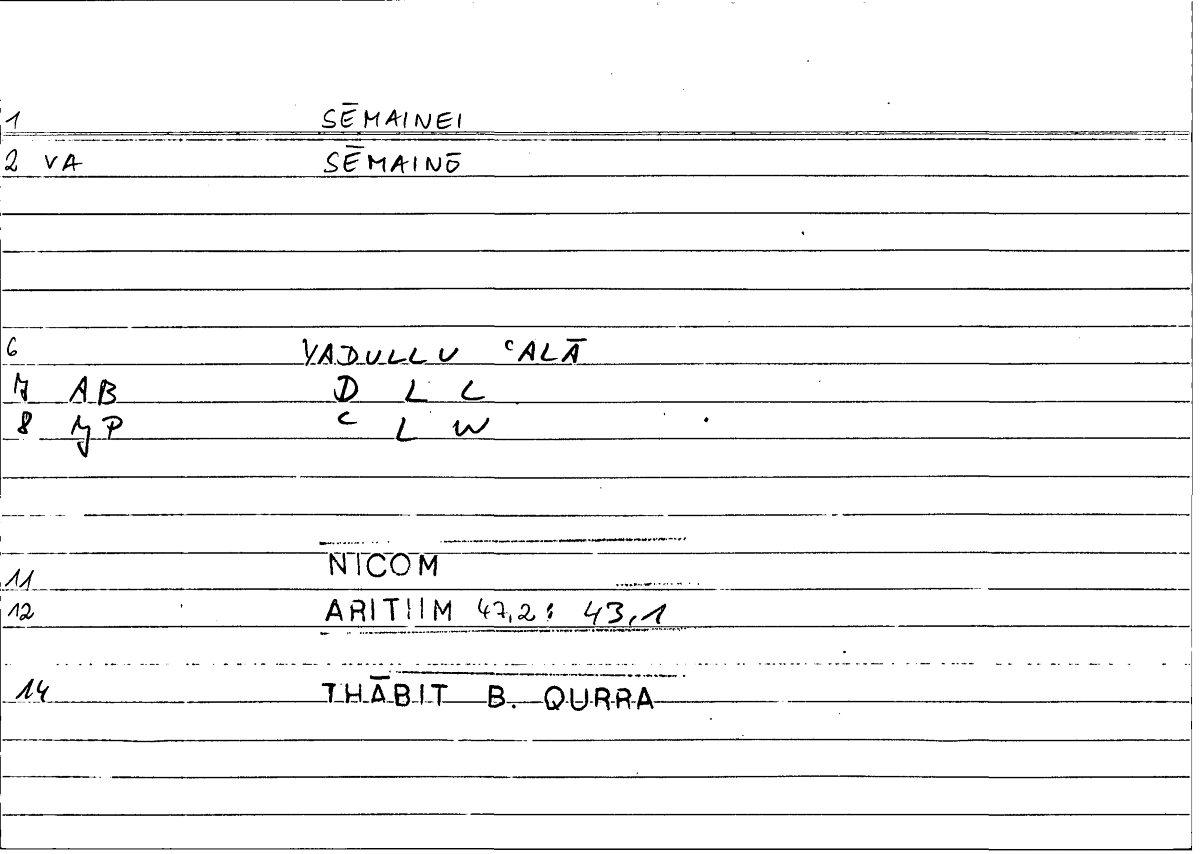 1 SĒMAINEI
2 VA SĒMAINŌ
6 YADULLU ʿALĀ
7 AB D L L
8 JP ʿ L W
11 NICOM
12 ARITIIM 47,2: 43,1
14 THĀBIT B. QURRA